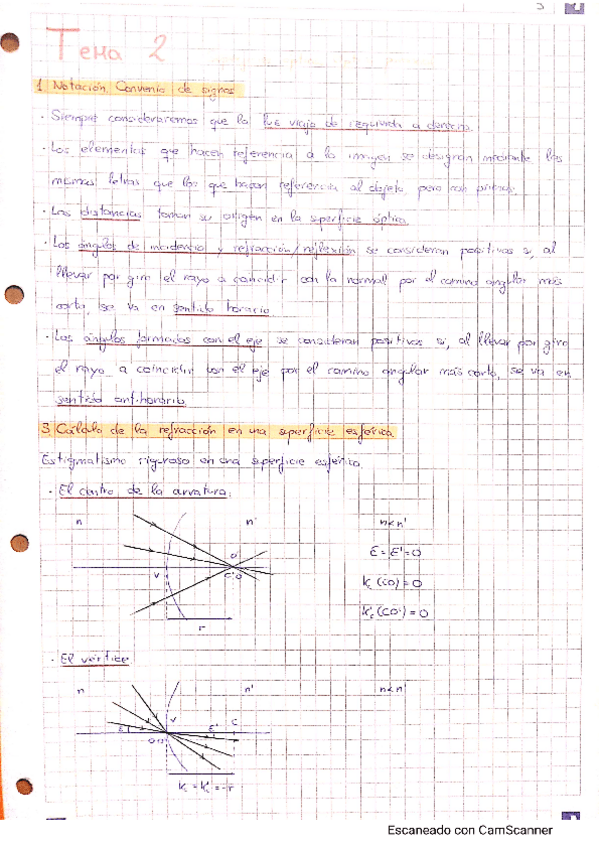 3
Tema 2
1. Notación. Convenio de signos
· Siempre consideraremos que la luz viaja de izquierda a derecha.
· Los elementos que hacen referencia a la imagen se designan mediante las
mismas letras que los que hacen referencia al objeto pero con primas.
· Las distancias toman su origen en la superficie óptica.
· Los ángulos de incidencia y refracción/reflexión se consideran positivos si, al
llevar por giro el rayo a coincidir con la normal por el camino angular más
corto, se va en sentido horario.
· Los ángulos formados con el eje se consideran positivos si, al llevar por giro
el rayo a coincidir con el eje por el camino angular más corto, se va en
sentido anti-horario.
3. Cálculo de la refracción en una superficie esférica.
Estigmatismo riguroso en una superficie esférica.
· El centro de la curvatura:
n n' n<n'
O'
ε = ε' = 0
V C O
(CO) = 0
r
(CO') = 0
· El vértice
n n' n<n'
V C
ε ε'
= -r
Escaneado con CamScanner